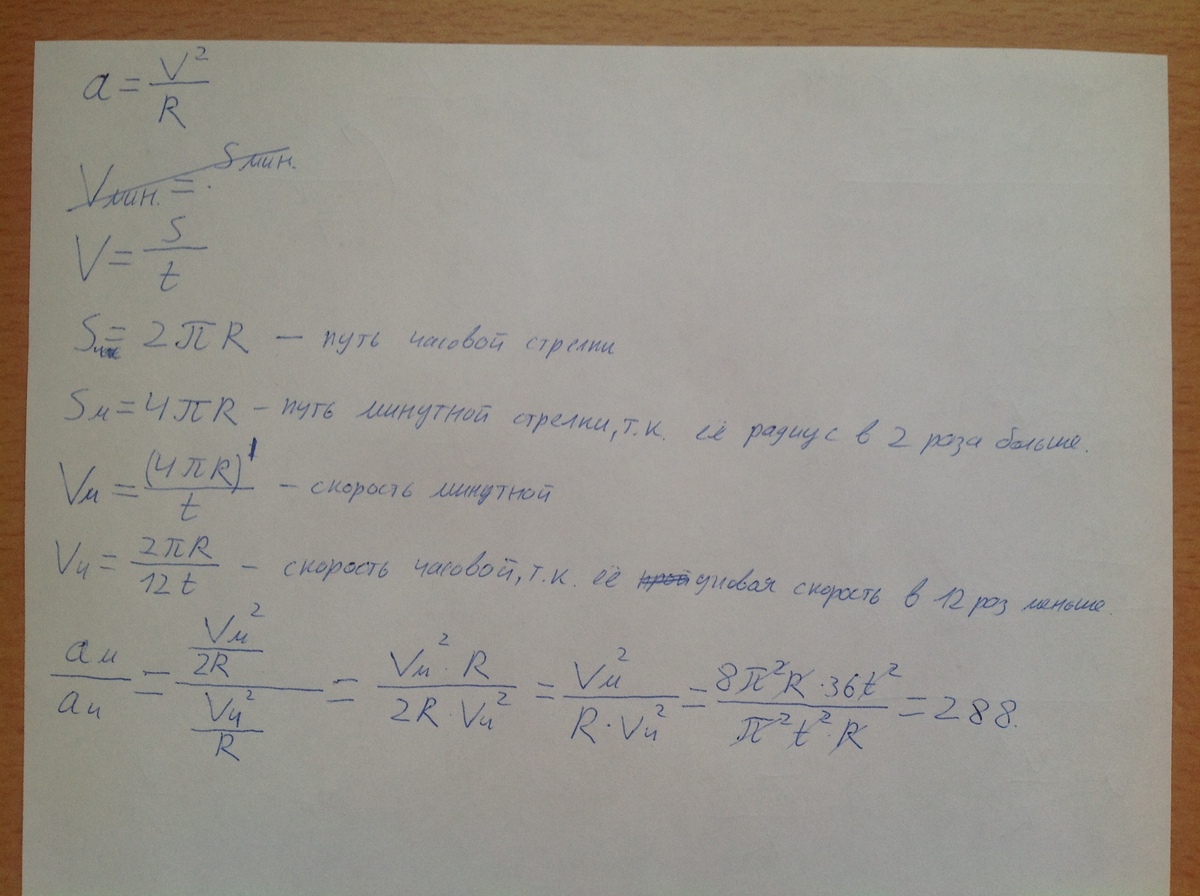 a = V² / R
Vмин. = Sмин.
V = S / t
S = 2πR — путь часовой стрелки
Sм = 4πR – путь минутной стрелки, т.к. её радиус в 2 раза больше.
Vм = (4πR) / t – скорость минутной
Vч = 2πR / 12t – скорость часовой, т.к. её угловая скорость в 12 раз меньше.
aм / aч = (Vм² / 2R) / (Vч² / R) = Vм² · R / 2R · Vч² = Vм² / R · Vч² = 8π²R · 36t² / π²t² · R = 288.